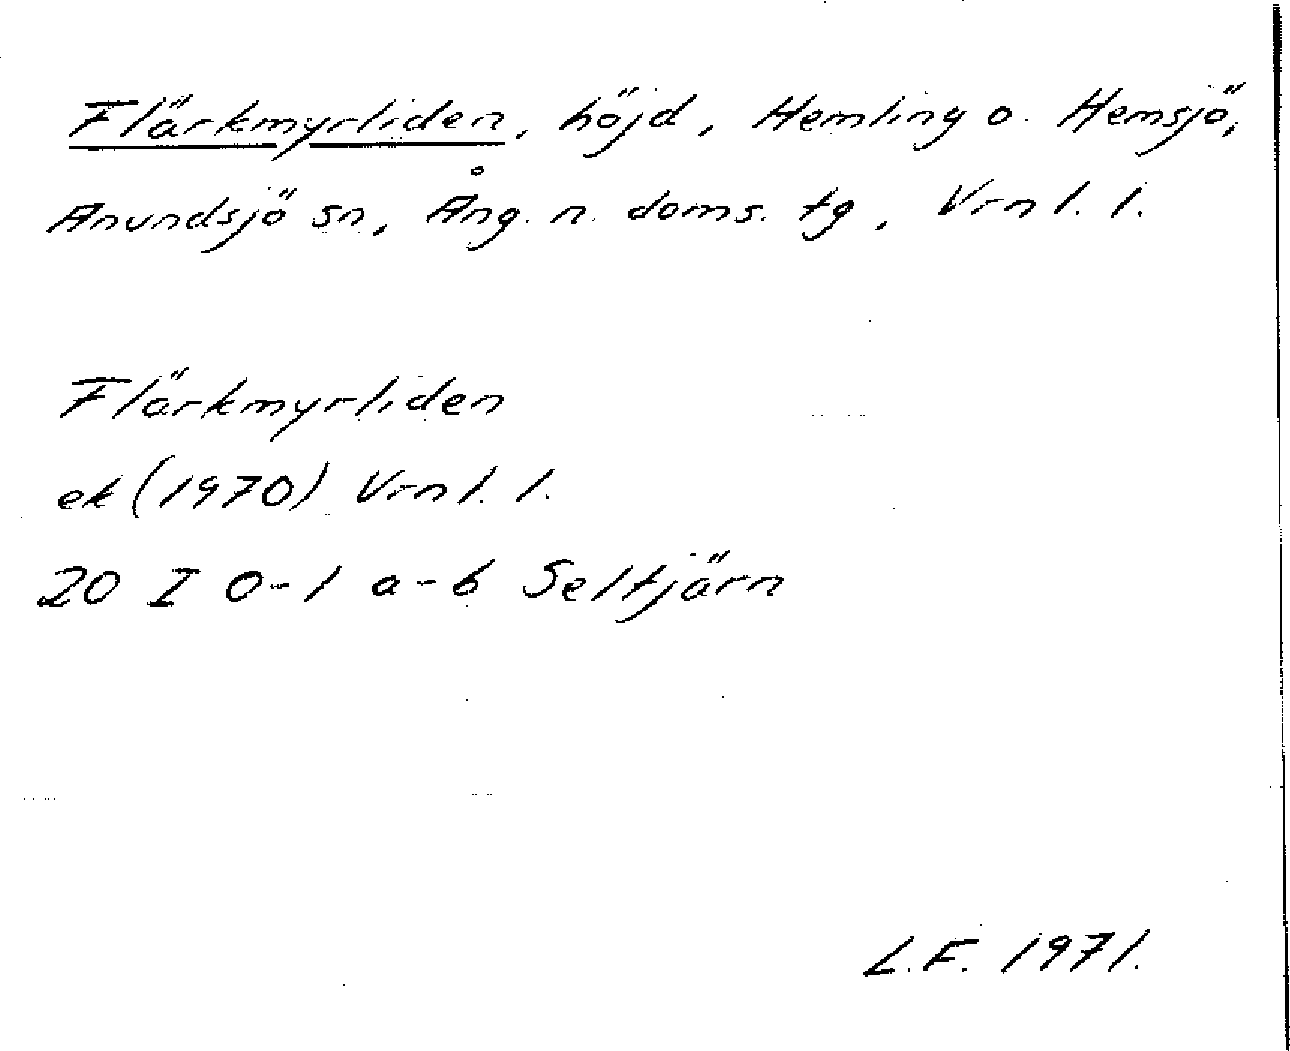 Flärkmyrliden, höjd, Hemling o. Hemsjö,
Anundsjö sn, Ång. n. doms. tg, Vrnl. l.
Flärkmyrliden
ek (1970) Vrnl. l.
20 I 0-1 a-b Seltjärn
L.F. 1971.